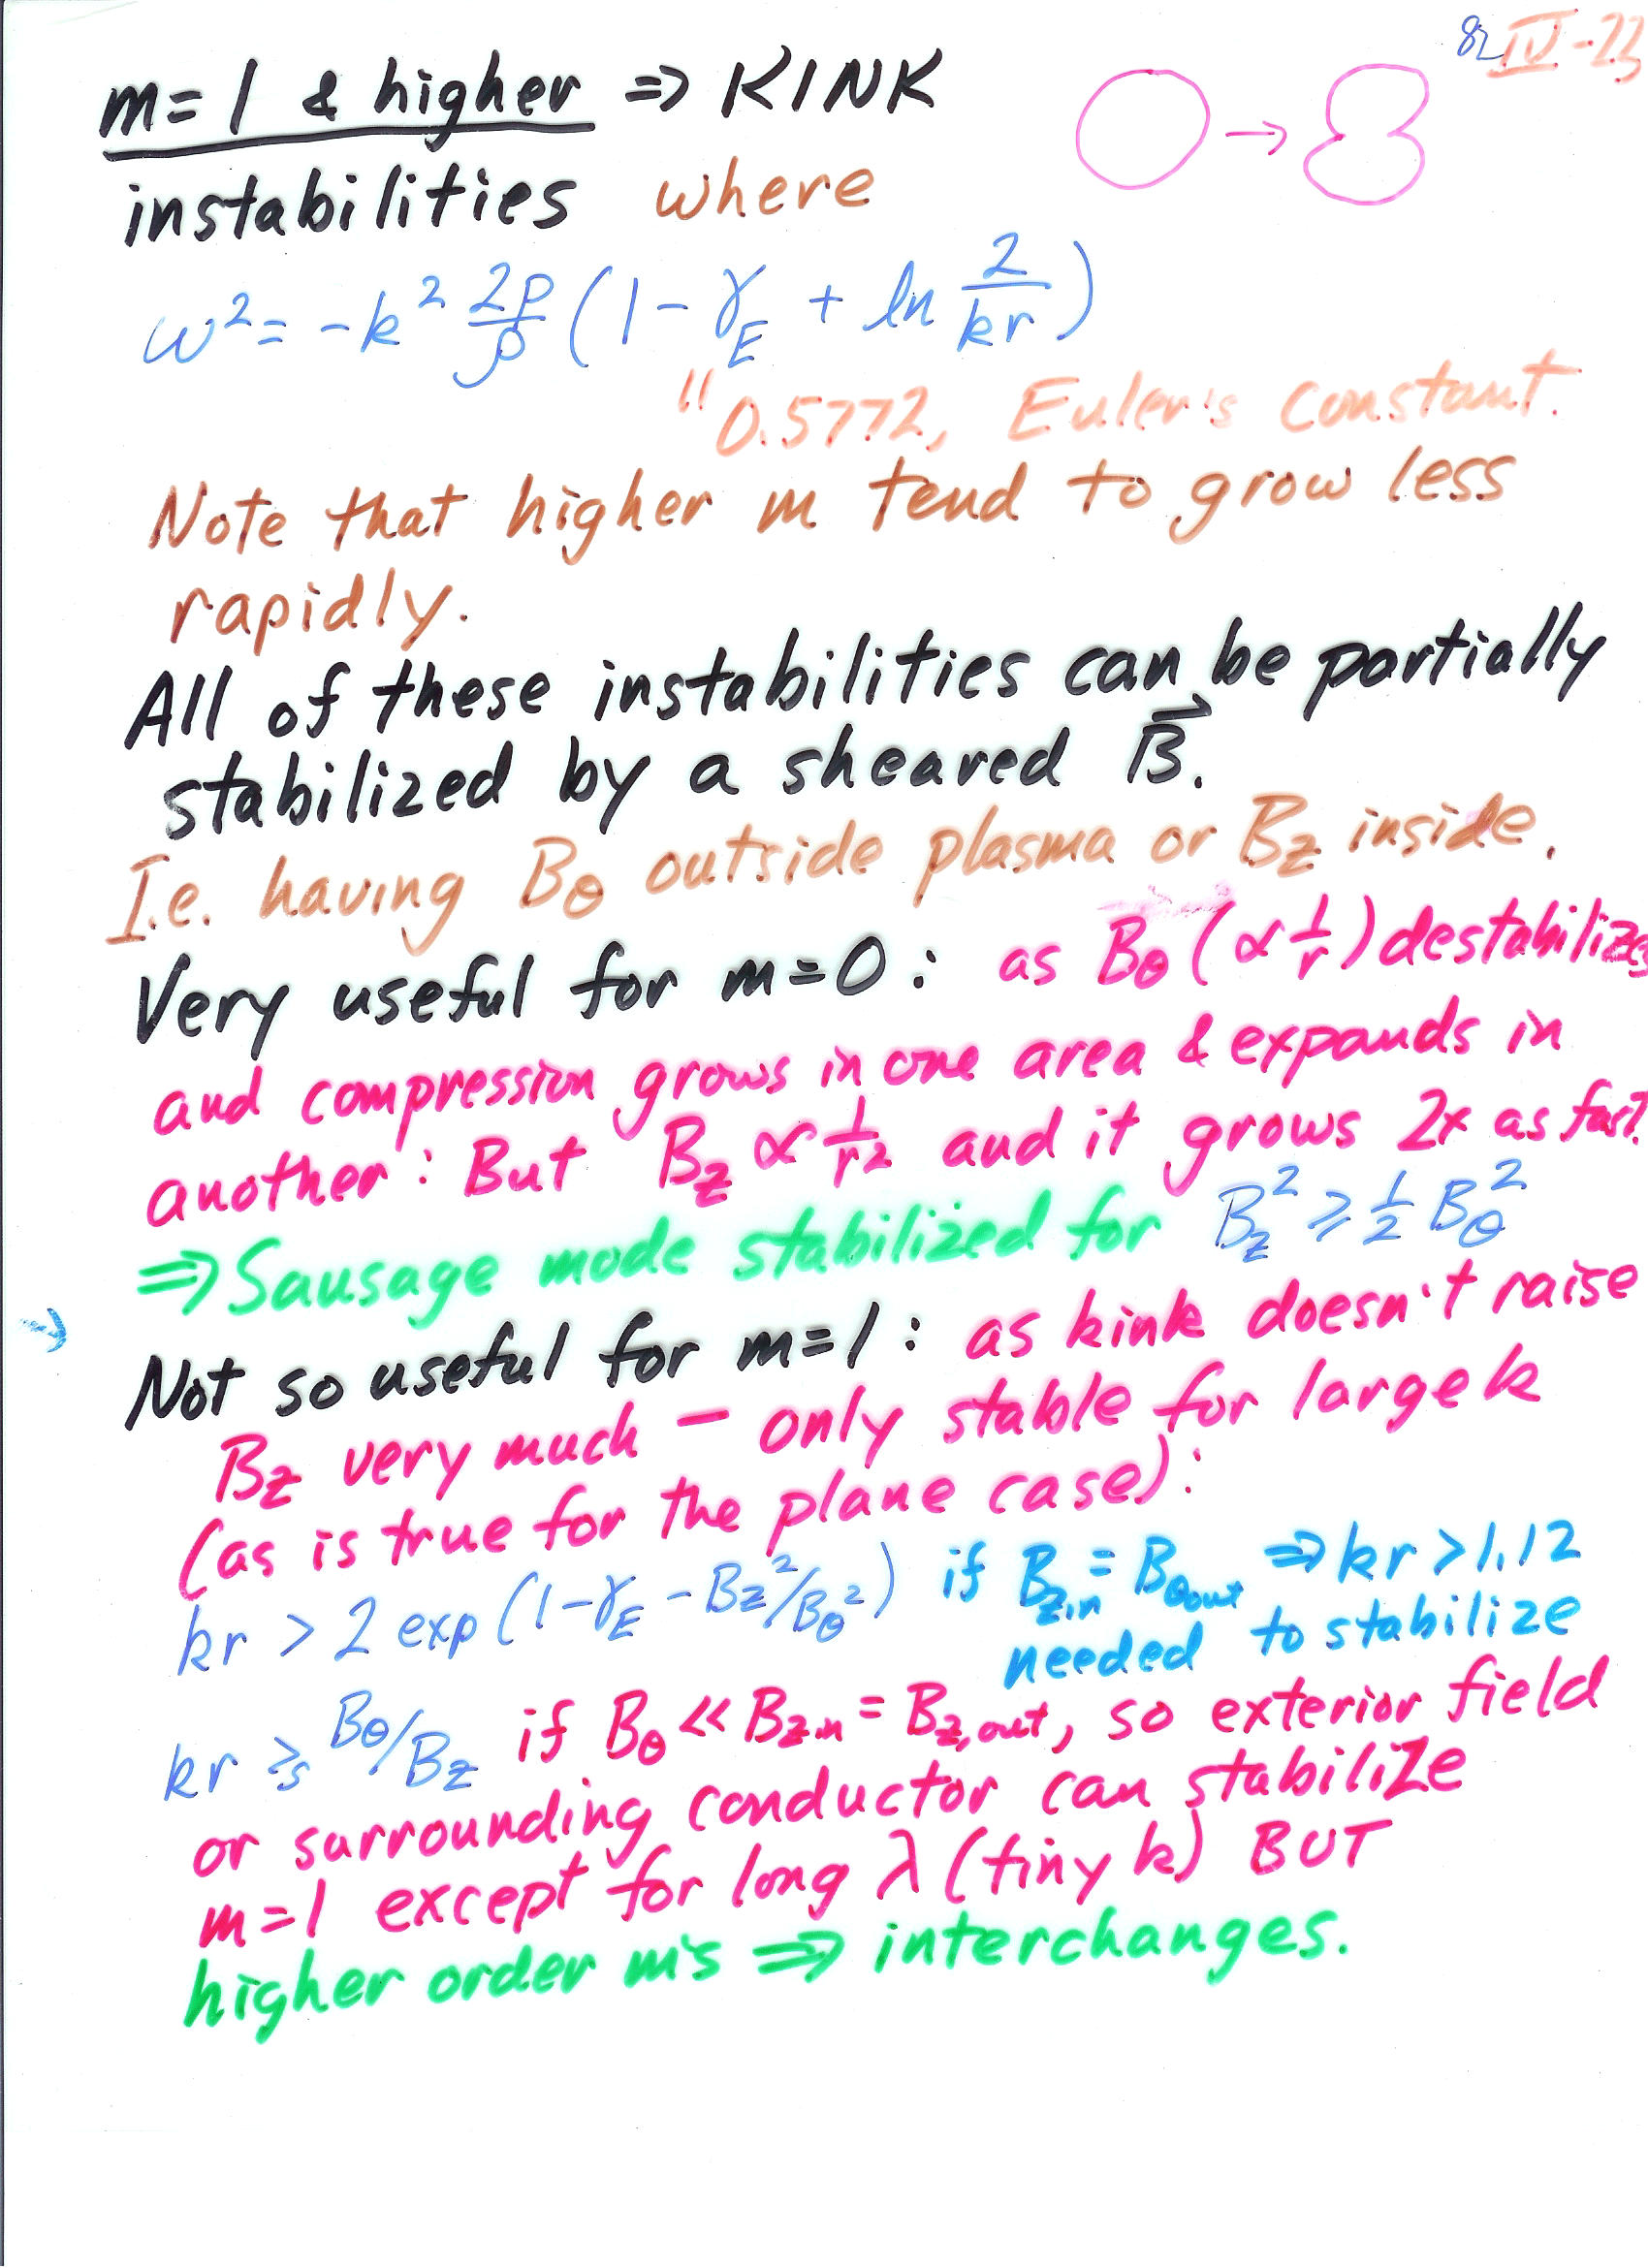 82 IV-23
m=1 & higher ⇒ KINK
instabilities where
ω² = -k² 2p/ρ (1 - γ_E + ln 2/kr)
" 0.5772, Euler's constant.
Note that higher m tend to grow less
rapidly.
All of these instabilities can be partially
stabilized by a sheared B⃗.
I.e. having Bθ outside plasma or Bz inside.
Very useful for m=0: as Bθ (∝ 1/r) destabilizes
and compression grows in one area & expands in
another: But Bz ∝ 1/r² and it grows 2x as fast.
⇒ Sausage mode stabilized for Bz² ≥ ½ Bθ²
Not so useful for m=1: as kink doesn't raise
Bz very much – only stable for large k
(as is true for the plane case):
kr > 2 exp (1-γ_E - Bz²/Bθ²) if Bz,in = Bθout ⇒ kr > 1.12
needed to stabilize
kr ≳ Bθ/Bz if Bθ << Bz,in = Bz,out, so exterior field
or surrounding conductor can stabilize
m=1 except for long λ (tiny k) BUT
higher order m's ⇒ interchanges.